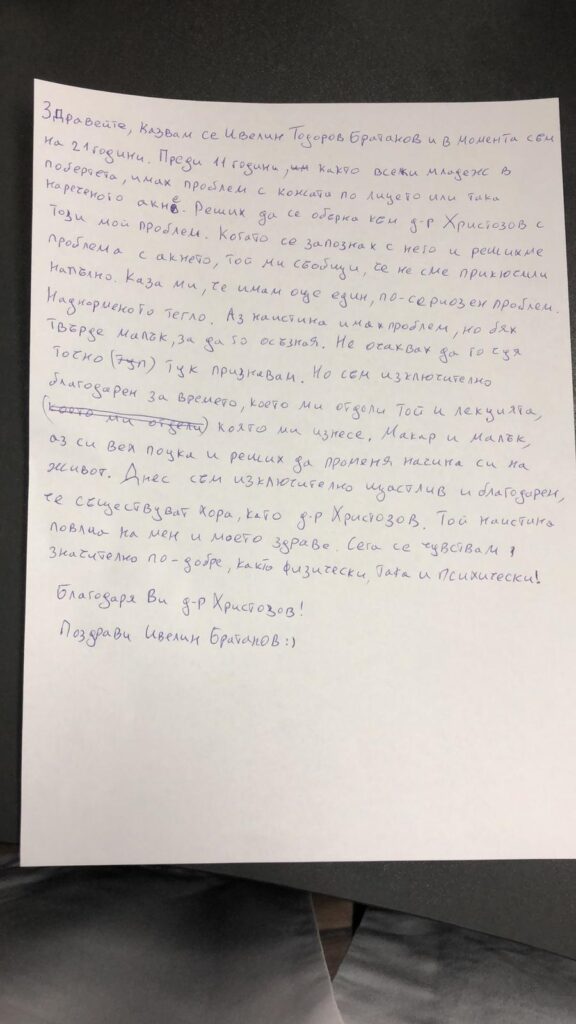 Здравейте, казвам се Ивелин Тодоров Братанов и в момента съм
на 21 години. Преди 11 години, както всеки младеж в
побертета, имах проблем с кожата по лицето или така
нареченото акне. Реших да се обърна към д-р Христозов с
този мой проблем. Когато се запознах с него и решихме
проблема с акнето, той ми съобщи, че не сме приключили
напълно. Каза ми, че имам още един, по-сериозен проблем.
Наднорменото тегло. Аз наистина имах проблем, но бях
твърде малък, за да го осъзная. Не очаквах да го чуя
точно (туп) тук признавам. Но съм изключително
благодарен за времето, което ми отдели той и лекцията,
(което ми отдели) която ми изнесе. Макар и малък,
аз си взех поука и реших да променя начина си на
живот. Днес съм изключително щастлив и благодарен,
че съществуват хора, като д-р Христозов. Той наистина
повлия на мен и моето здраве. Сега се чувствам
значително по-добре, както физически, така и психически!
Благодаря Ви д-р Христозов!
Поздрави Ивелин Братанов :)